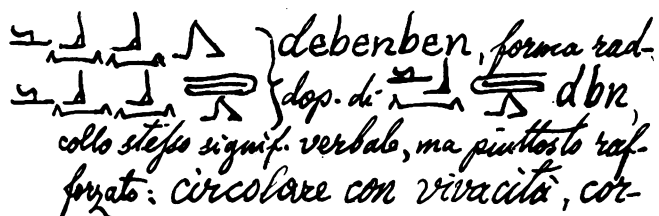 debenben, forma rad-
dop. di dbn,
collo steſso signif. verbale, ma piuttosto raf-
forzato: circolare con vivacità, cor-